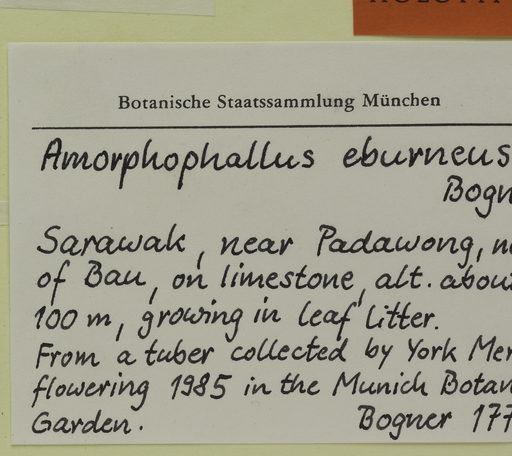 Botanische Staatssammlung München
Amorphophallus eburneus
Bogn
Sarawak, near Padawong, n
of Bau, on limestone, alt. about
100 m, growing in leaf litter.
From a tuber collected by York Mer
flowering 1985 in the Munich Botan
Garden. Bogner 177